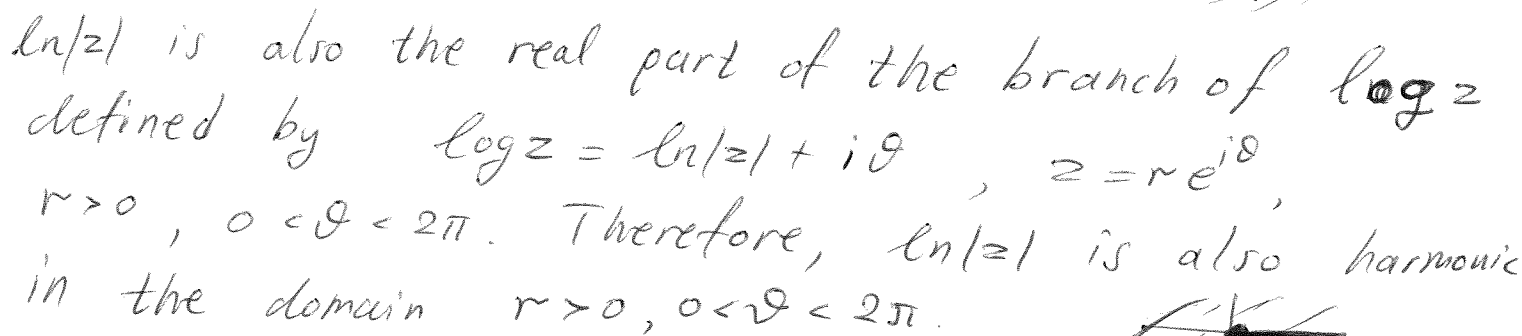 ln|z| is also the real part of the branch of log z
defined by log z = ln|z| + iϑ , z = re^{iϑ},
r > 0 , 0 < ϑ < 2π. Therefore, ln|z| is also harmonic
in the domain r > 0, 0 < ϑ < 2π.